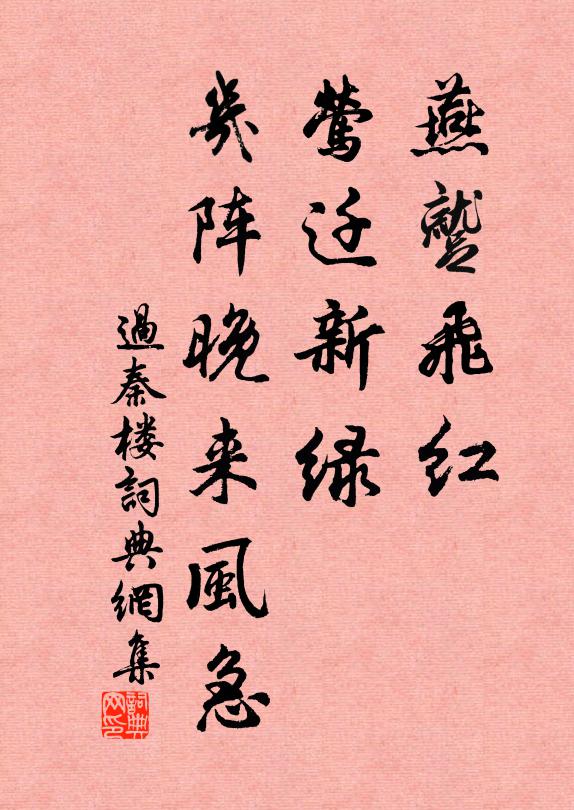 燕蹵飛红
鶯迁新绿
幾阵晚来風急
過秦楼詞典網集
詞典网印